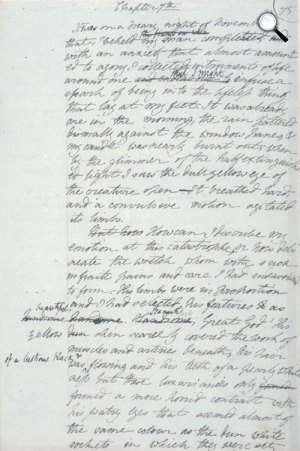 Chapter 7th
It was on a dreary night of November
that I beheld my man completed &
with an anxiety that almost amount
ed to agony I collected instruments of life
around me that I might infuse a
spark of being into the lifeless thing
that lay at my feet. It was already
one in the morning, the rain pattered
dismally against the window panes &
my candle was nearly burnt out, when
by the glimmer of the half extinguish
ed light I saw the dull yellow eye of
the creature open. It breathed hard
and a convulsive motion agitated
its limbs.
But how How can I describe my
emotion at this catastrophe; or how deli
neate the wretch whom with such
infinite pains and care I had endeavoured
to form. His limbs were in proportion
and I had selected his features as
beautiful
handsome Beautiful; Great God! His
yellow skin scarcely covered the work of
muscles and arteries beneath; his hair
of a lustrous black &
was flowing and his teeth of a pearly white
ness but these luxuriances only formed
formed a more horrid contrast with
his watry eyes that seemed almost of
the same colour as the dun white
sockets in which they were set,